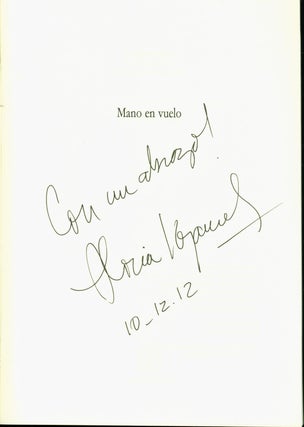 Mano en vuelo
Con un abrazo!
Gloria
10-12.12